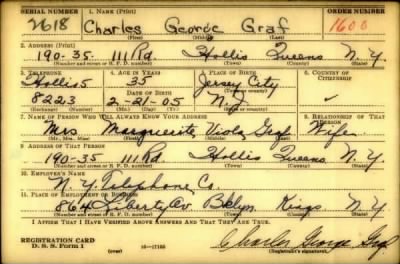 SERIAL NUMBER 1. NAME (Print) ORDER NUMBER
2618 Charles George Graf 1600
(First) (Middle) (Last)
2. ADDRESS (Print)
190-35. 111 Rd. Hollis Queens N.Y.
(Number and street or R. F. D. number) (Town) (County) (State)
3. TELEPHONE 4. AGE IN YEARS 5. PLACE OF BIRTH 6. COUNTRY OF CITIZENSHIP
Hollis 5 35 Jersey City
DATE OF BIRTH
8223 2-27-05 N.J. ✓
(Exchange) (Number) (Mo.) (Day) (Yr.) (State or country)
7. NAME OF PERSON WHO WILL ALWAYS KNOW YOUR ADDRESS 8. RELATIONSHIP OF THAT PERSON
Mrs. Marguerite Viola Graf Wife
(Mr., Mrs., Miss) (First) (Middle) (Last)
9. ADDRESS OF THAT PERSON
190-35 111 Rd. Hollis Queens N.Y.
(Number and street or R. F. D. number) (Town) (County) (State)
10. EMPLOYER'S NAME
N.Y. Telephone Co.
11. PLACE OF EMPLOYMENT OR BUSINESS
864 Liberty Av Bklyn. Kings N.Y.
(Number and street or R. F. D. number) (Town) (County) (State)
I AFFIRM THAT I HAVE VERIFIED ABOVE ANSWERS AND THAT THEY ARE TRUE.
REGISTRATION CARD
D. S. S. Form 1 (over) 16—17105
Charles George Graf
(Registrant's signature)